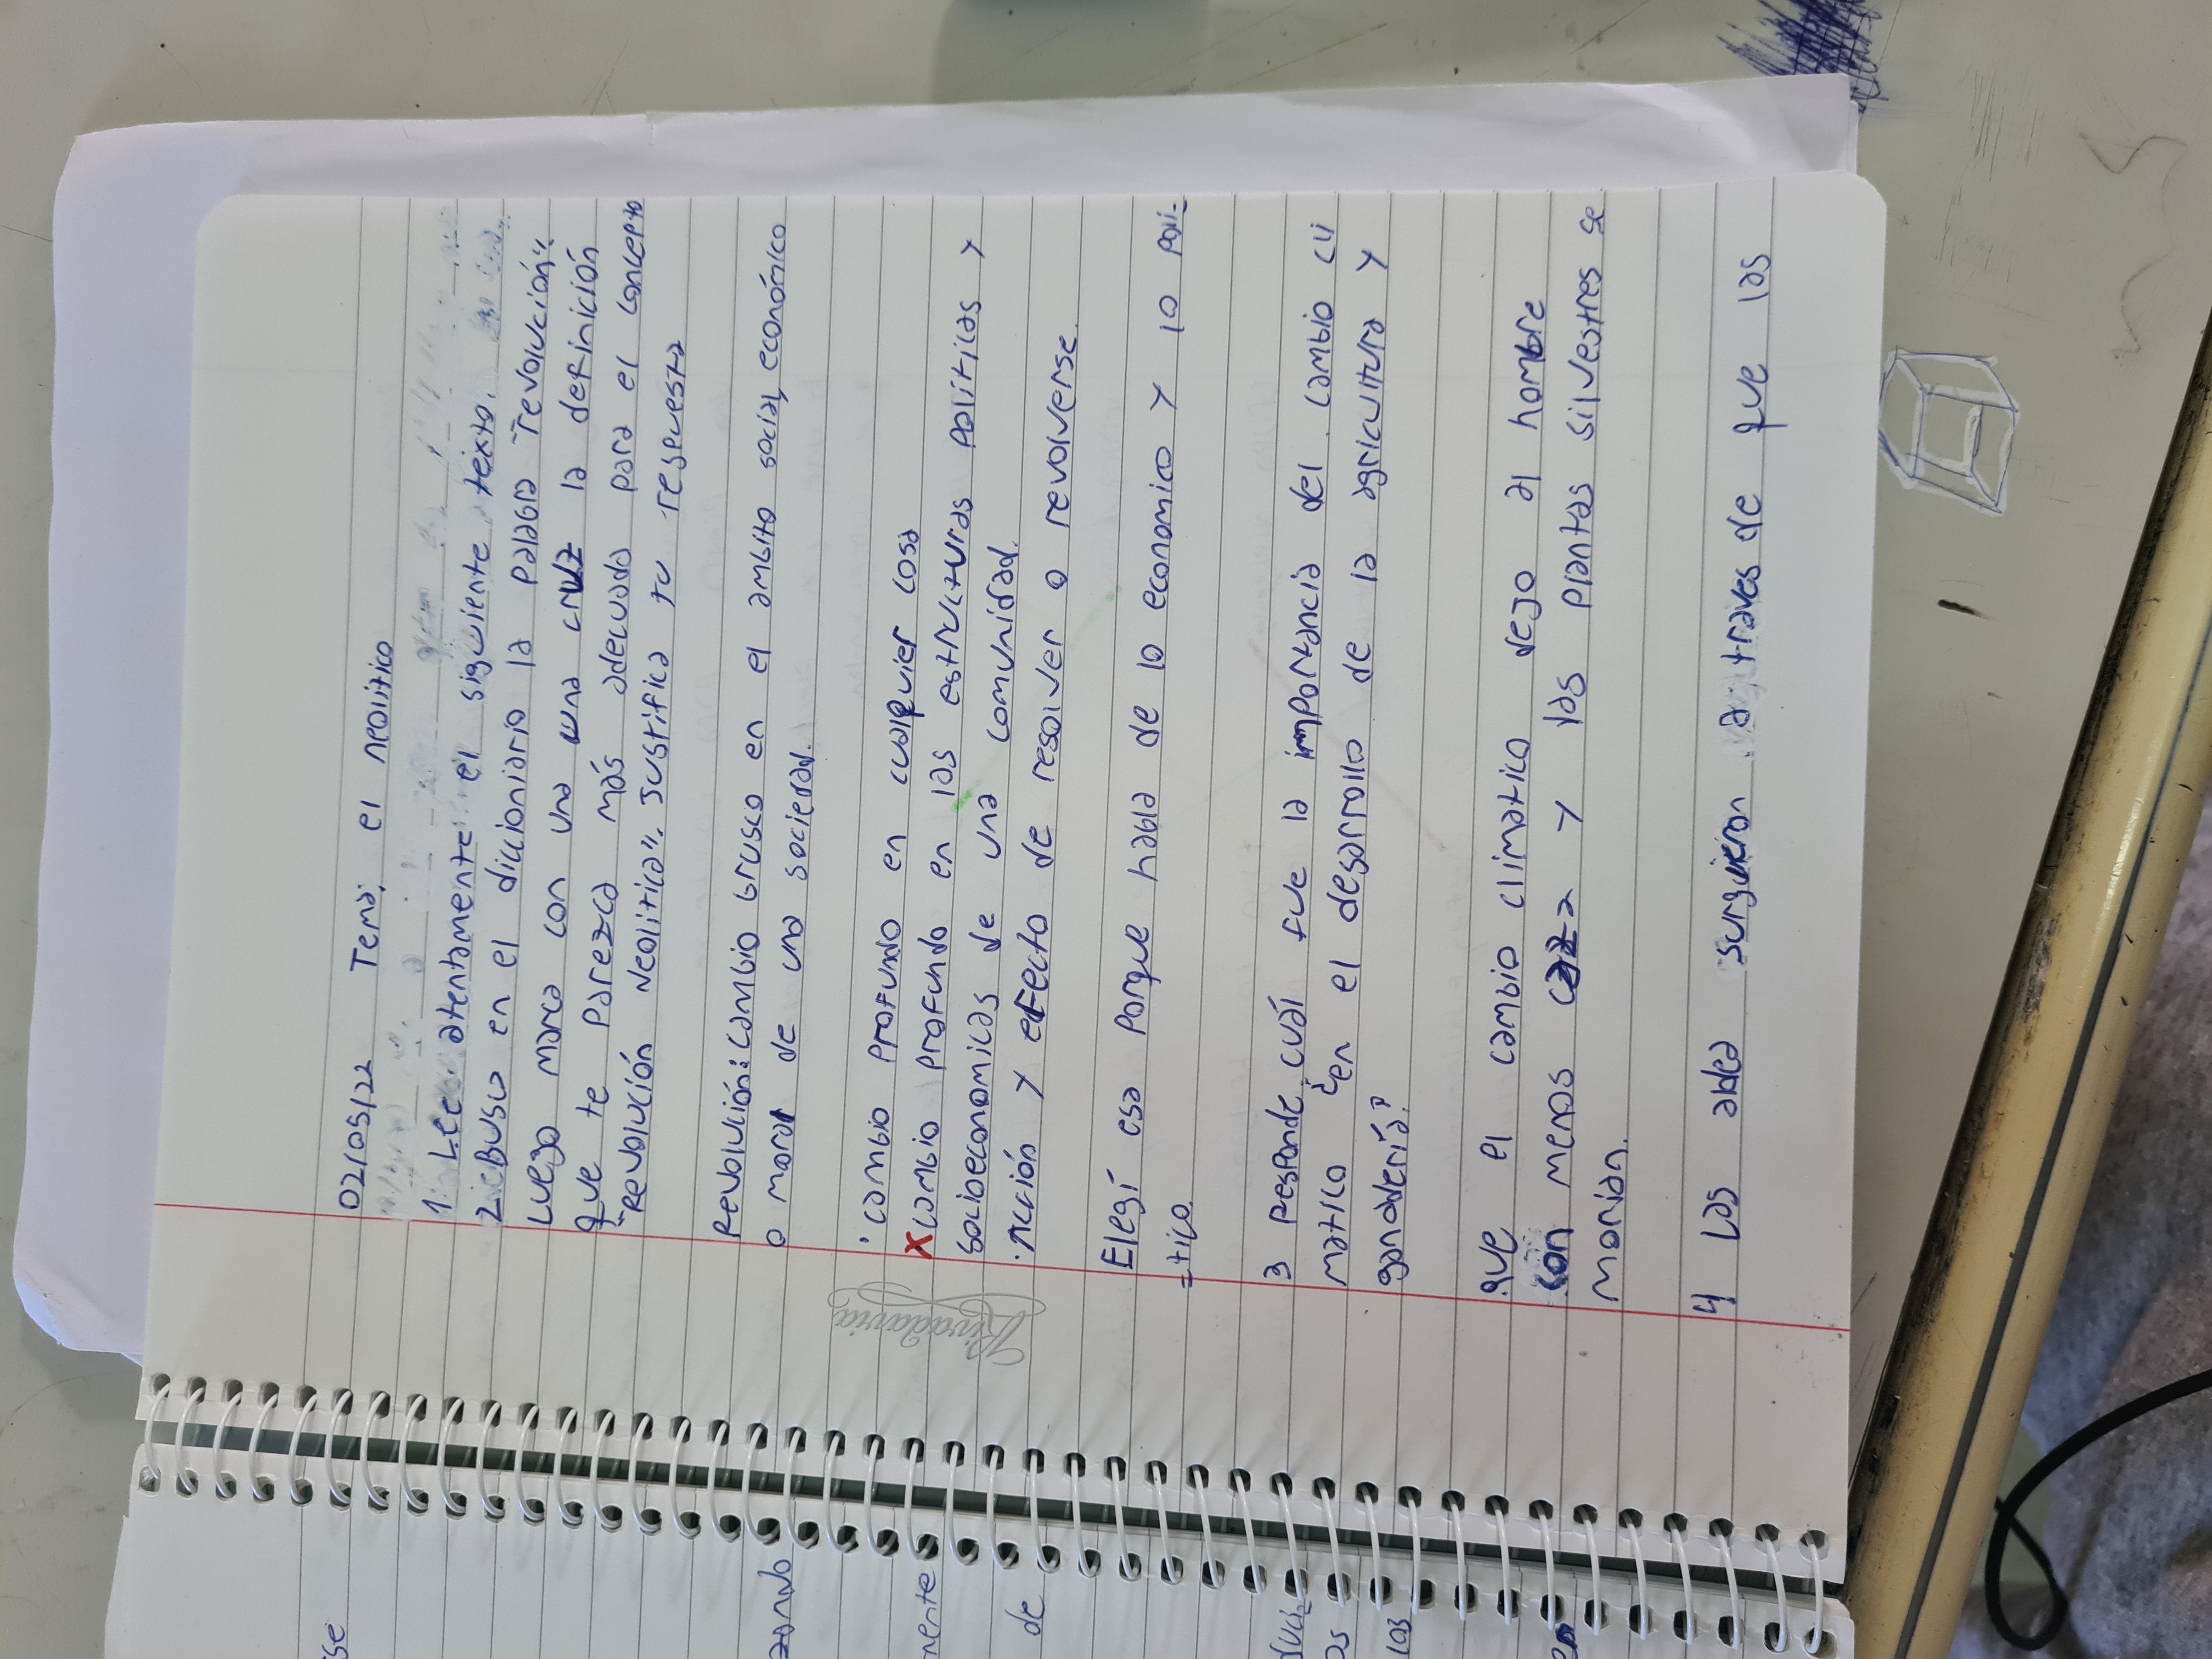 02/05/22 Tema: el neolitico
1 Lee atentamente el siguiente texto.
2 Busca en el diccionario la palabra "revolución".
Luego marca con una una cruz la definición
que te parezca más adecuado para el concepto
"Revolución Neolitica". Justifica tu respuesta
Revolución: cambio brusco en el ambito social, económico
o moral de una sociedad.
· cambio profundo en cualquier cosa
x cambio profundo en las estructuras politicas y
socioeconomicas de una comunidad.
· Acción y efecto de resolver o revolverse.
Elegí esa porque habla de lo economico y lo polí-
-tico.
3 Responde. cuál fue la importancia del cambio cli
matico en el desarrollo de la agricultura y
ganadería?
que el cambio climatico dejo al hombre
con menos caza y las plantas silvestres se
morian.
4 Las aldea surgieron a traves de que las
Rivadavia
se
zando
mente
de
os
los